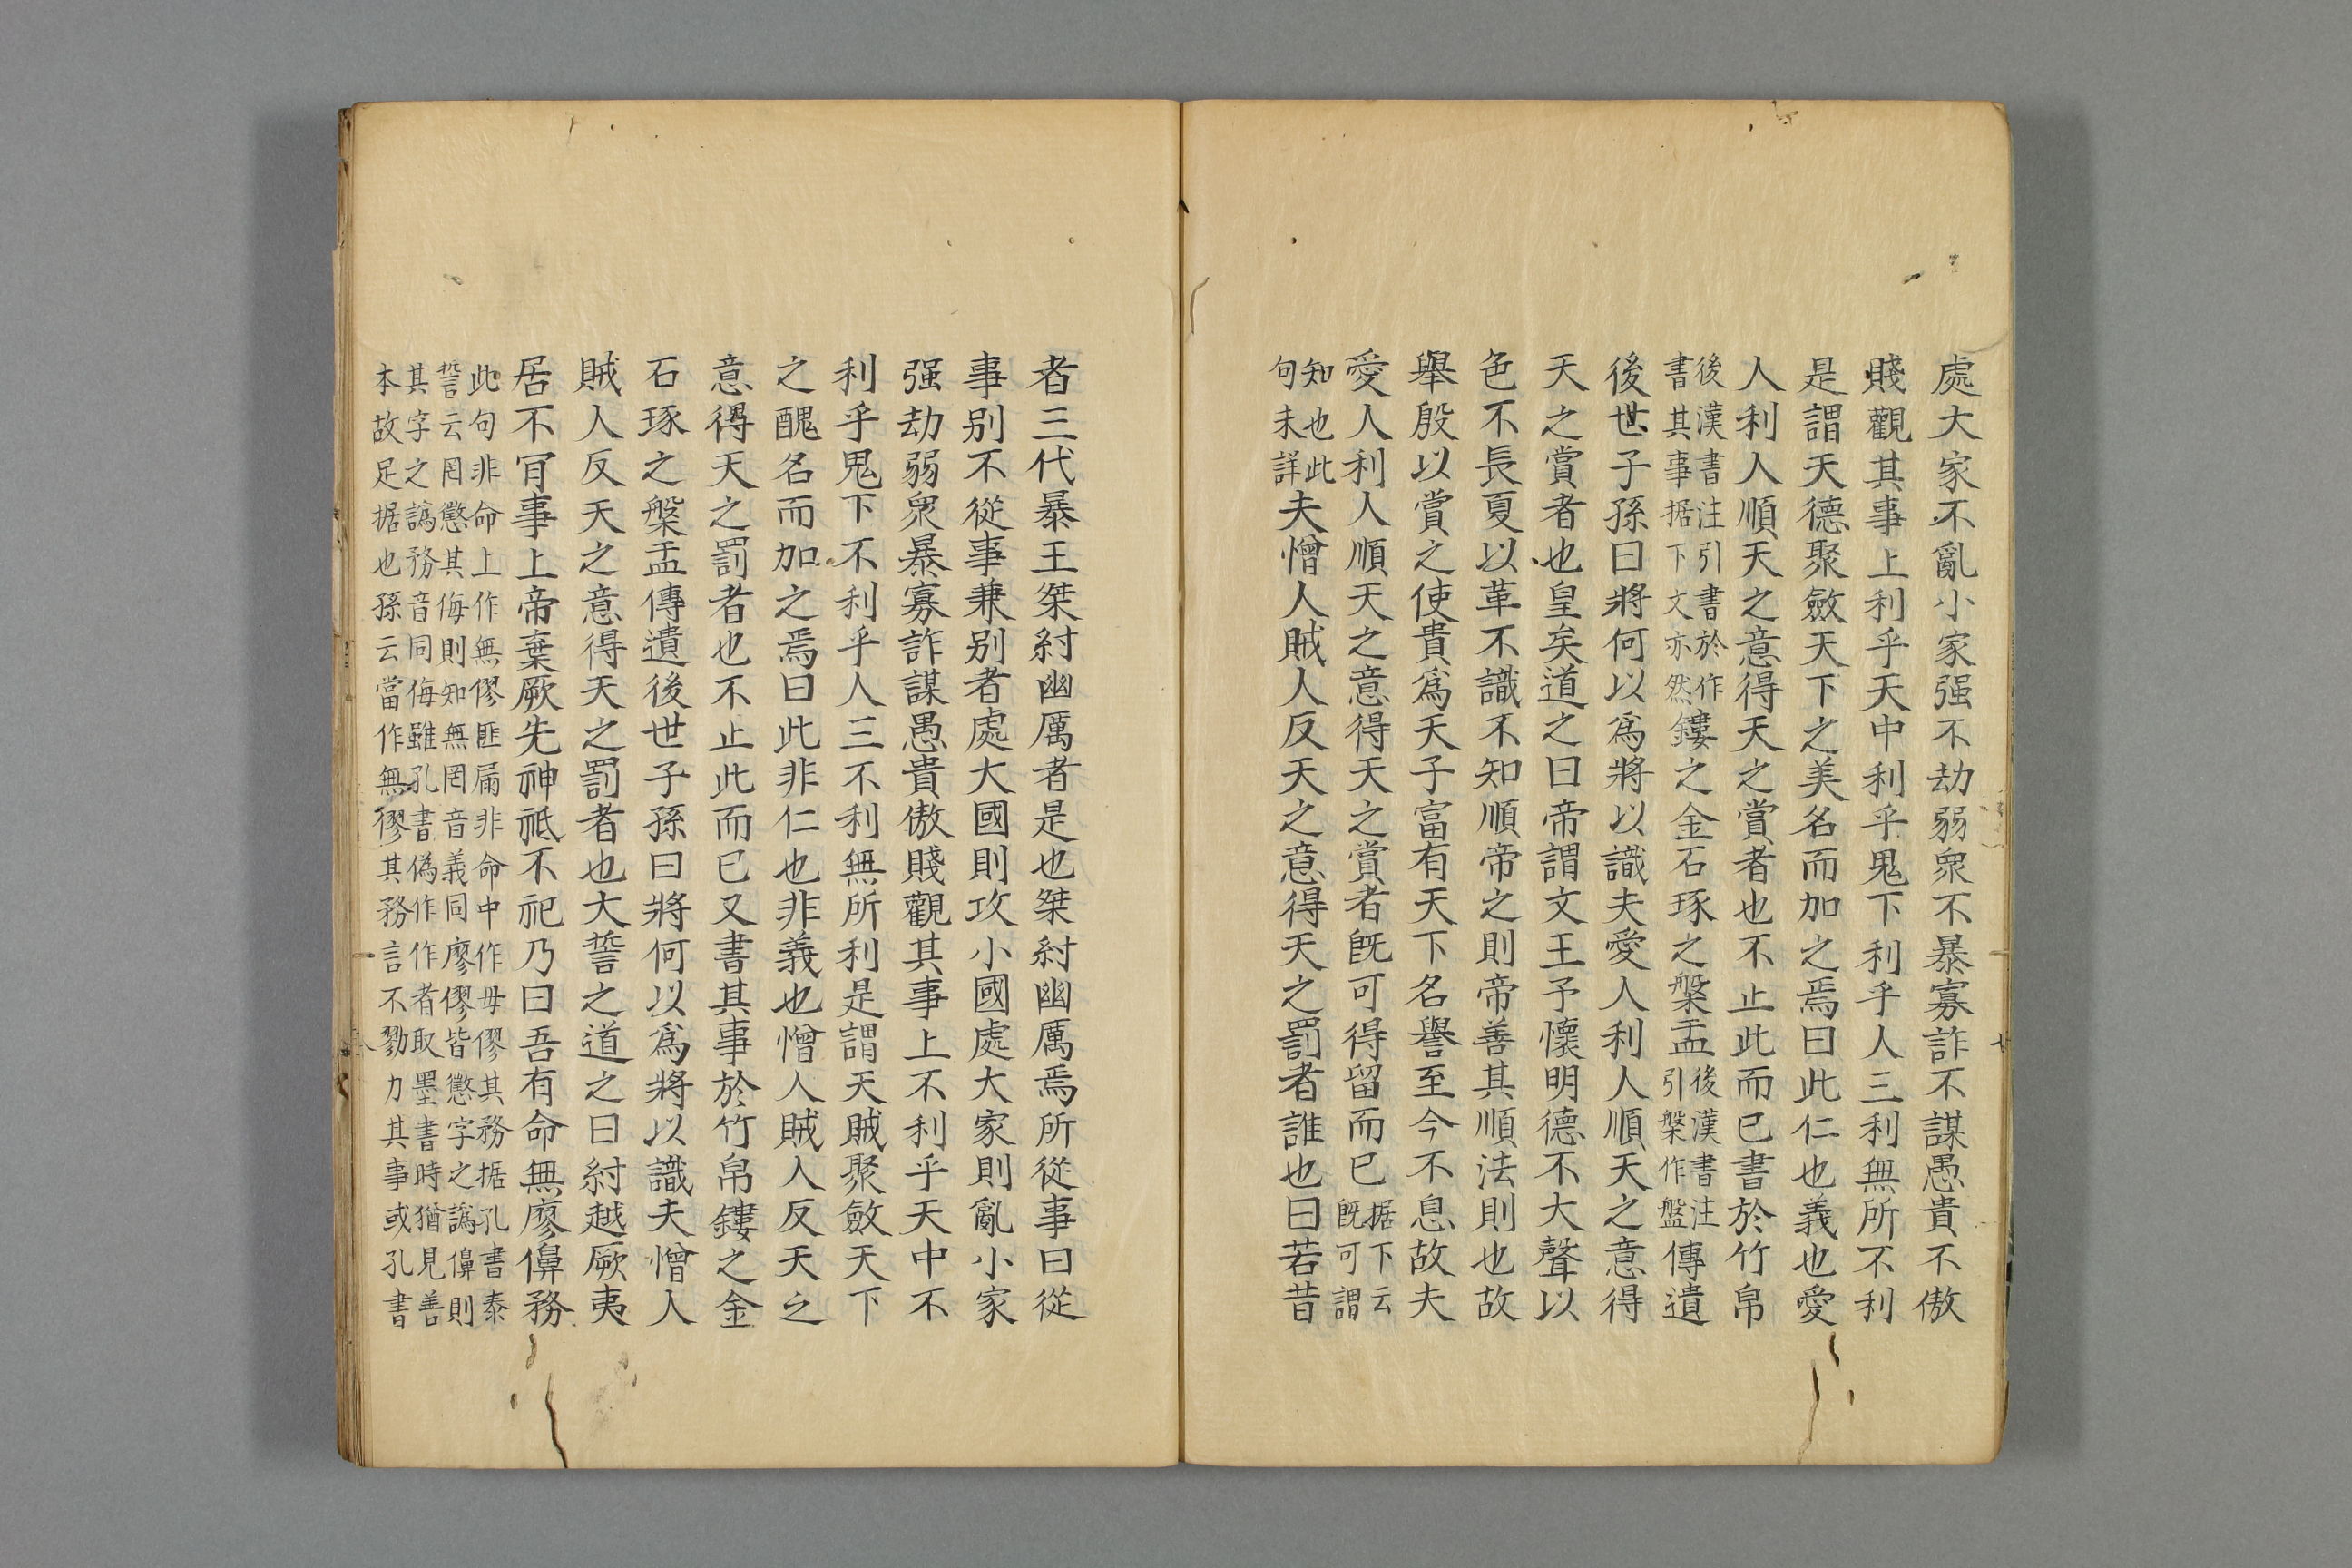 處大家不亂小家强不劫弱衆不暴寡詐不謀愚貴不傲
賤觀其事上利乎天中利乎鬼下利乎人三利無所不利
是謂天德聚斂天下之美名而加之焉曰此仁也義也愛
人利人順天之意得天之賞者也不止此而已書於竹帛
後漢書注引書於作
書其事据下文亦然
鏤之金石琢之槃盂
後漢書注
引槃作盤
傳遺
後世子孫曰將何以爲將以識夫愛人利人順天之意得
天之賞者也皇矣道之曰帝謂文王予懷明德不大聲以
色不長夏以革不識不知順帝之則帝善其順法則也故
舉殷以賞之使貴爲天子富有天下名譽至今不息故夫
愛人利人順天之意得天之賞者旣可得留而已
据下云
旣可謂
知也此
句未詳
夫憎人賊人反天之意得天之罰者誰也曰若昔
者三代暴王桀紂幽厲者是也桀紂幽厲焉所從事曰從
事别不從事兼别者處大國則攻小國處大家則亂小家
强劫弱衆暴寡詐謀愚貴傲賤觀其事上不利乎天中不
利乎鬼下不利乎人三不利無所利是謂天賊聚斂天下
之醜名而加之焉曰此非仁也非義也憎人賊人反天之
意得天之罰者也不止此而已又書其事於竹帛鏤之金
石琢之槃盂傳遺後世子孫曰將何以爲將以識夫憎人
賊人反天之意得天之罰者也大誓之道之曰紂越厥夷
居不肎事上帝棄厥先神祗不祀乃曰吾有命無廖㒑務
此句非命上作無僇匪扇非命中作毋僇其務据孔書泰
誓云罔懲其侮則知無罔音義同廖僇皆懲字之譌㒑則
其字之譌務音同侮雖孔書偽作作者取墨書時猶見善
本故足据也孫云當作無㣎其務言不勠力其事或孔書